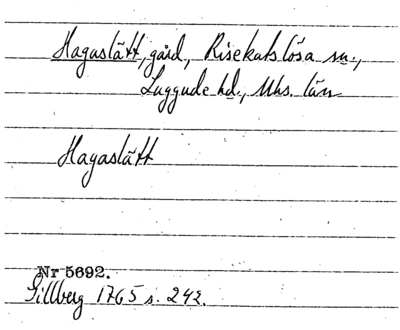 Hagaslätt, gård, Risekatslösa sn.,
Luggude hd., Mhs. län
Hagaslätt
Nr 5692.
Gillberg 1765 s. 242.